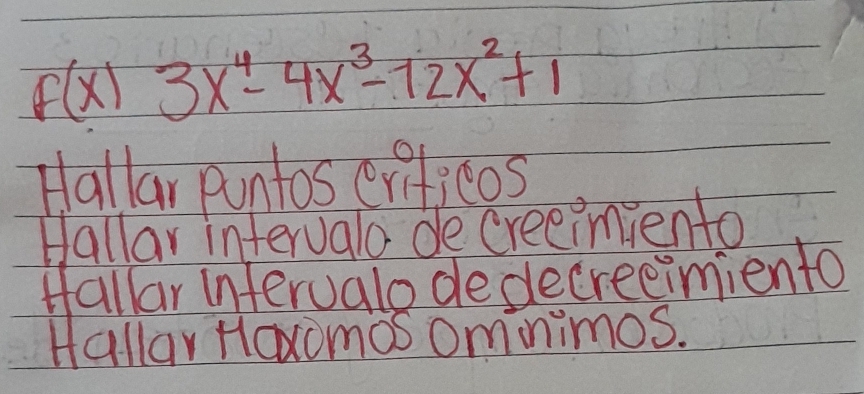 f(x) 3x⁴- 4x³-12x²+1
Hallar puntos críticos
Hallar intervalo de crecimiento
Hallar intervalo de decrecimiento
Hallar Maxomos o minimos.